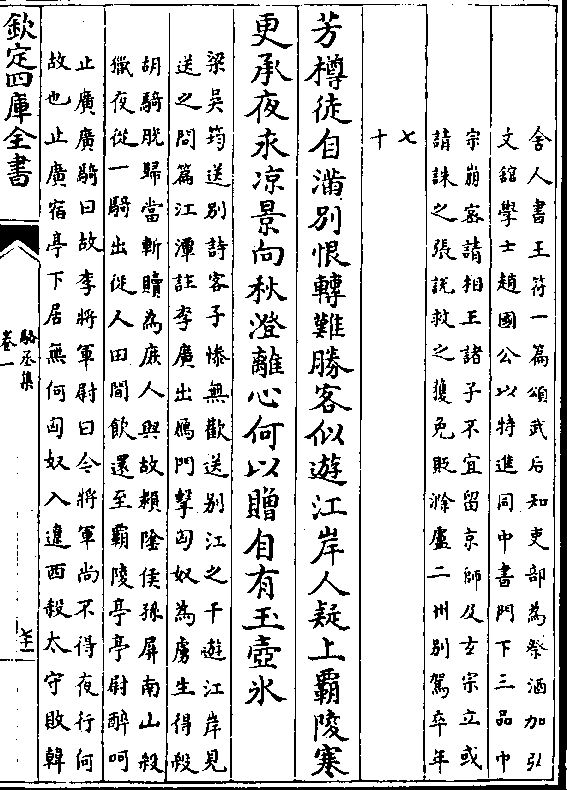 舍人書王符一篇頌武后知吏部為祭酒加弘
文館學士趙國公以特進同中書門下三品中
宗崩宻請相王諸子不宜留京師及玄宗立或
請誅之張説救之獲免貶滁盧二州别駕卒年
七
十
芳樽徒自滿别恨轉難勝客似遊江岸人疑上霸陵寒
更承夜永凉景向秋澄離心何以贈自有玉壺氷
梁吳筠送别詩客子慘無歡送别江之干遊江岸見
送之問篇江潭註李廣出鴈門擊匈奴為虜生得殺
胡騎脱歸當斬贖為庶人與故頴隂侯孫屏南山殺
獵夜從一騎出從人田間飲還至霸陵亭亭尉醉呵
止廣廣騎曰故李將軍尉曰今將軍尚不得夜行何
故也止廣宿亭下居無何匈奴入遼西殺太守敗韓
欽定四庫全書
駱丞集
卷一